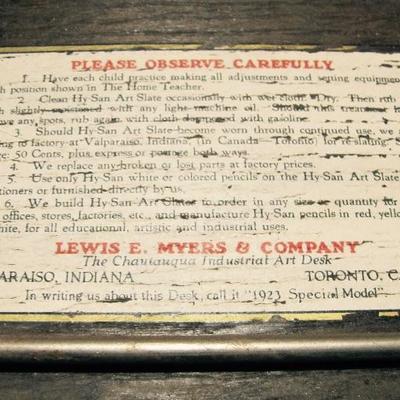 PLEASE OBSERVE CAREFULLY
1. Have each child practice making all adjustments and setting equipment
h position shown in The Home Teacher.
2. Clean Hy-San Art Slate occasionally with wet cloth. Dry. Then rub
h slightly moistened with any light machine oil. Should this treatment
ve any spots, rub again with cloth dampened with gasoline.
3. Should Hy-San Art Slate become worn through continued use, we a
ing to factory at Valparaiso, Indiana, (in Canada—Toronto) for re-slating. S
ge: 50 Cents, plus express or postage both ways.
4. We replace any broken or lost parts at factory prices.
5. Use only Hy-San white or colored pencils on the Hy-San Art Slate
tioners or furnished directly by us.
6. We build Hy-San Art Slates to order in any size or quantity for
offices, stores, factories, etc., and manufacture Hy-San pencils in red, yello
hite, for all educational, artistic and industrial uses.
LEWIS E. MYERS & COMPANY
The Chautauqua Industrial Art Desk
PARAISO, INDIANA TORONTO, CA
In writing us about this Desk, call it "1923 Special Model"